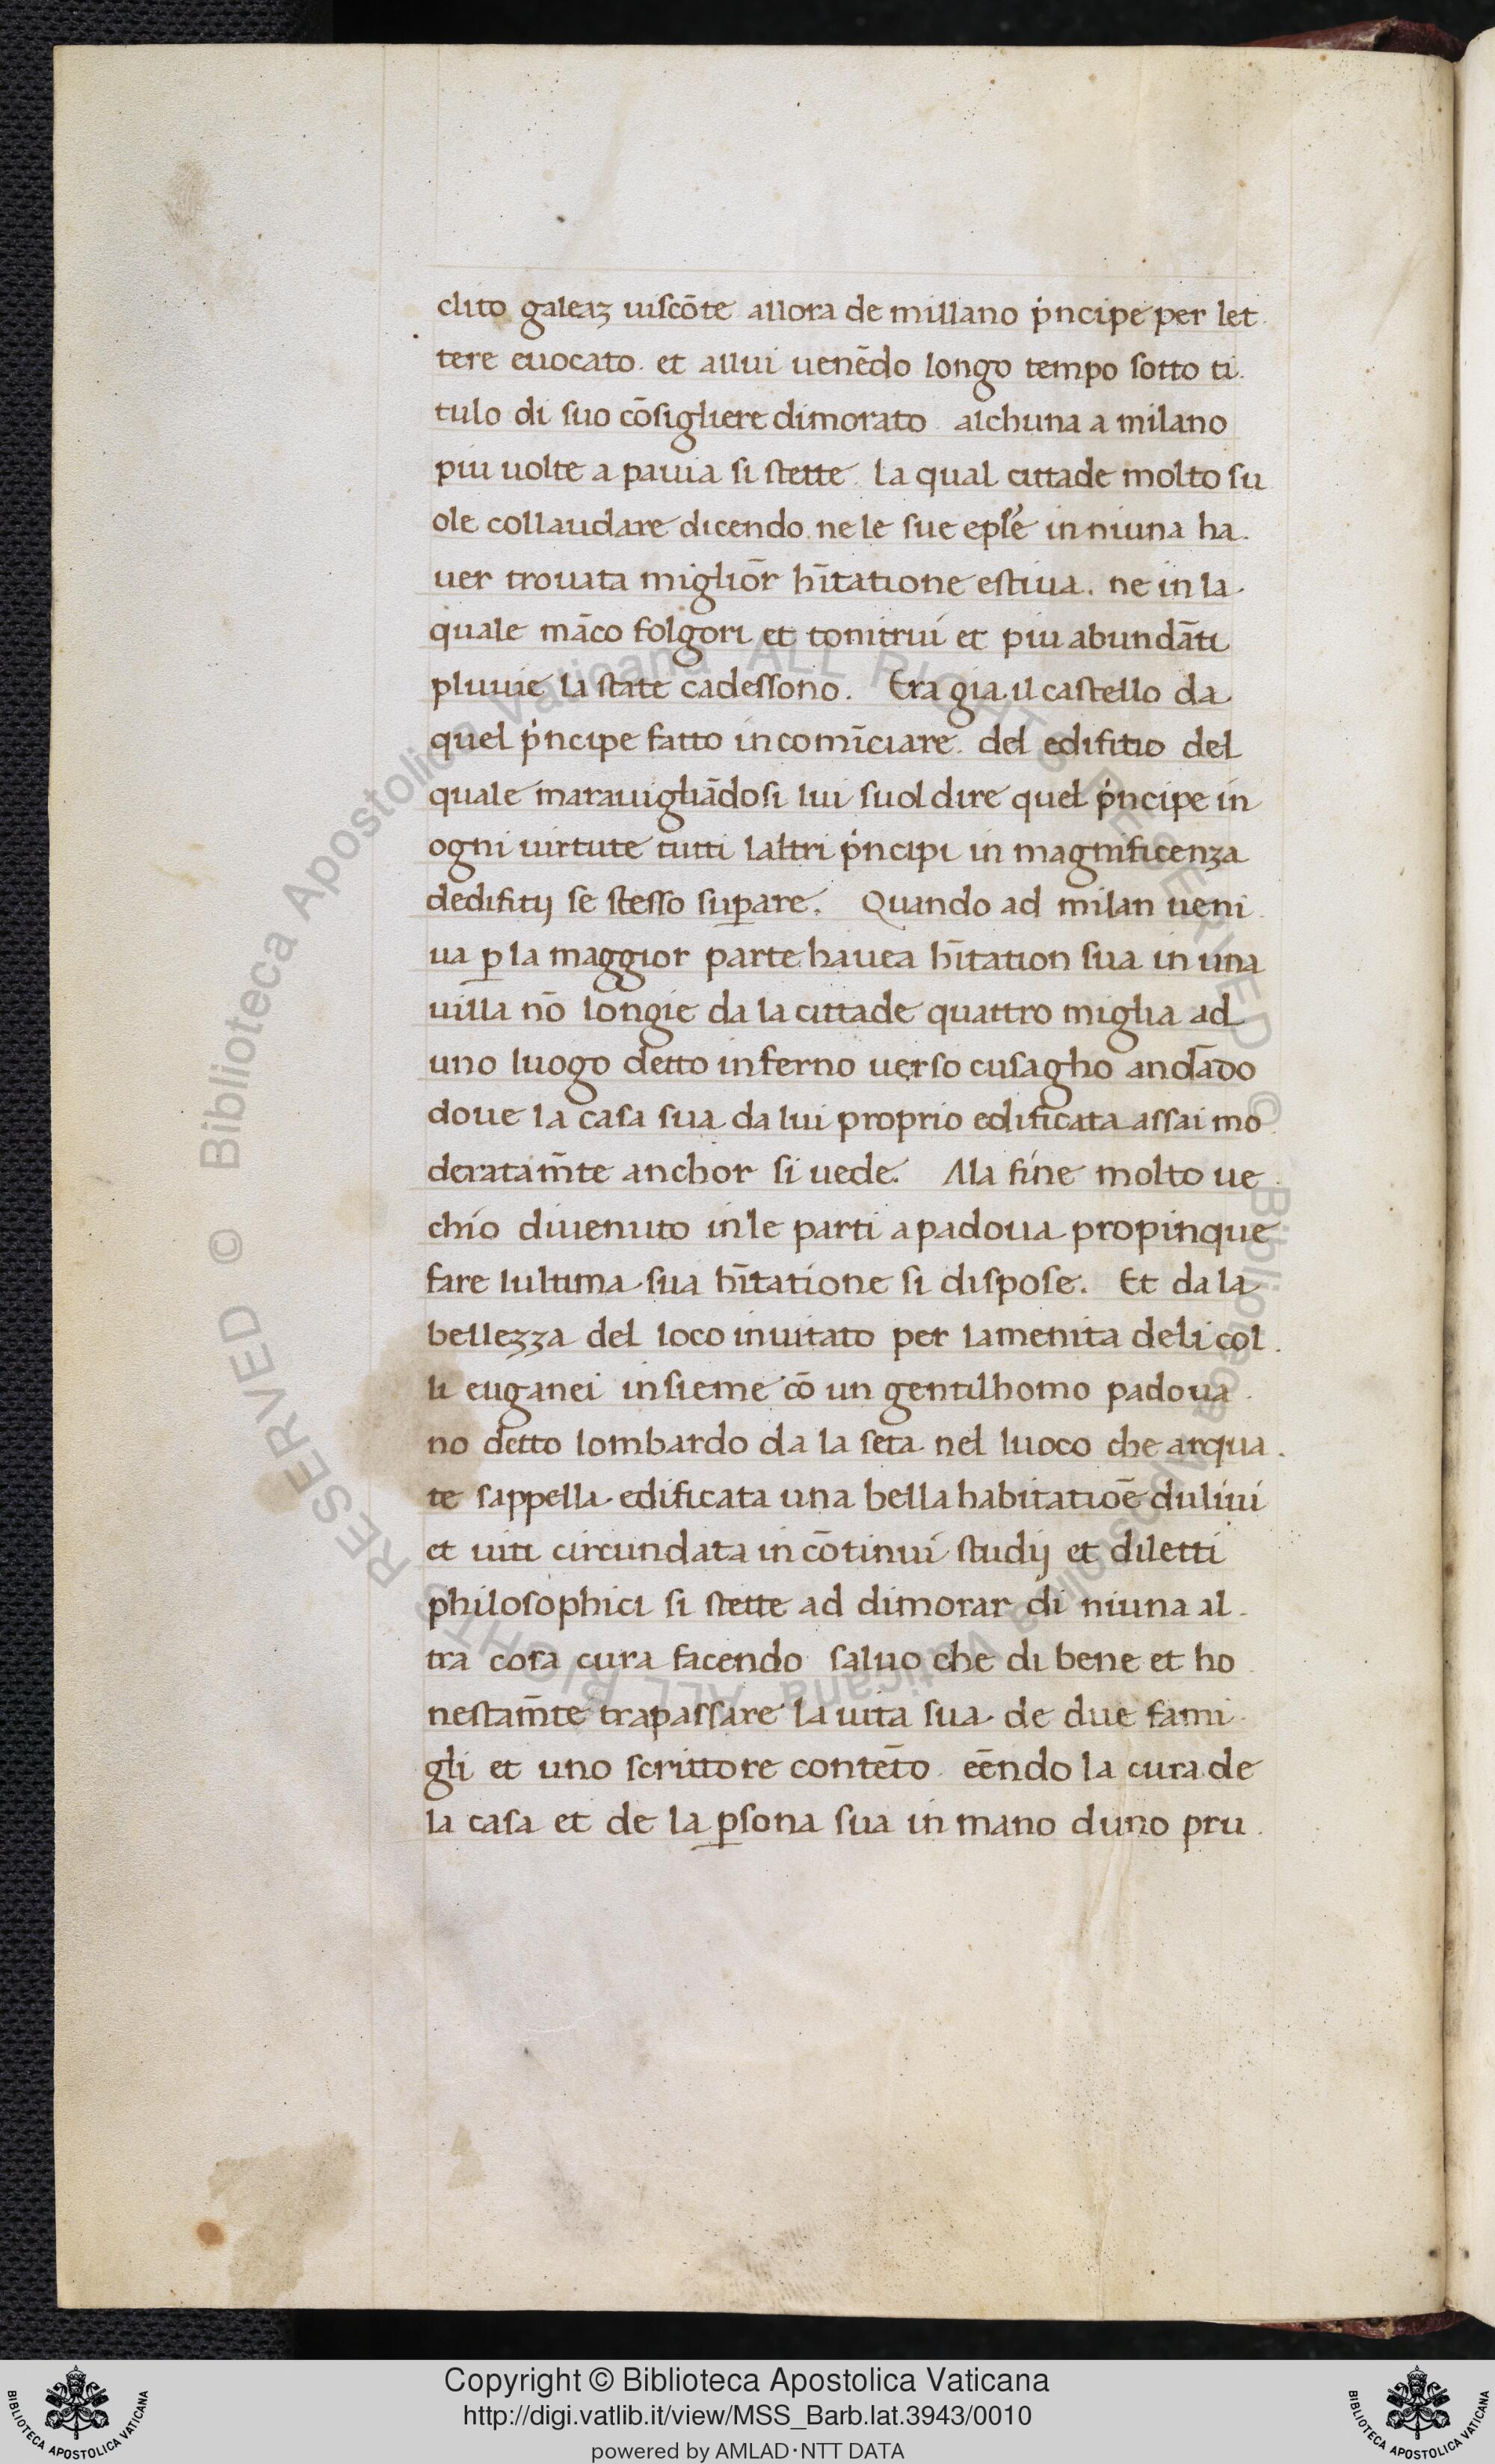 clito galeaz uiscōte allora de millano pͥncipe per let
tere euocato. et allui uenēdo longo tempo sotto ti.
tulo di suo cōsigliere dimorato. alchuna a milano
piu uolte a pauia si stette. la qual cittade molto su
ole collaudare dicendo. ne le sue epłe in niuna ha.
uer trouata miglior̄ hītatione estiua. ne in la.
quale māco folgori et tonitrui et piu abundāti
pluuie la state cadessono. Era gia il castello da
quel pͥncipe fatto incomīciare. del edifitio del
quale marauigliādosi lui suol dire quel pͥncipe in
ogni uirtute tutti laltri pͥncipi in magnificenza
dedifitij se stesso suꝑare. Quando ad milan ueni.
ua ꝑ la maggior parte hauea hītation sua in una
uilla nō longie da la cittade quattro miglia ad
uno luogo detto inferno uerso cusagho andādo
doue la casa sua da lui proprio edificata assai mo
deratam̄te anchor si uede. Ala fine molto ue.
chio diuenuto in le parti a padoua propinque
fare lultima sua hītatione si dispose. Et da la
bellezza del loco inuitato per lamenita deli col.
li euganei insieme cō un gentilhomo padoua.
no detto lombardo da la seta nel luoco che arqua.
te sappella edificata una bella habitatiōe duliui
et uiti circundata in cōtinui studij et diletti
philosophici si stette ad dimorar di niuna al.
tra cosa cura facendo saluo che di bene et ho.
nestam̄te trapassare la uita sua. de due fami.
gli et uno scrittore contēto. eēndo la cura de
la casa et de la ꝑsona sua in mano duno pru.
© Biblioteca Apostolica Vaticana ALL RIGHTS RESERVED © Biblioteca Apostolica Vaticana ALL RIGHTS RESERVED
Copyright © Biblioteca Apostolica Vaticana
http://digi.vatlib.it/view/MSS_Barb.lat.3943/0010
powered by AMLAD·NTT DATA
BIBLIOTECA APOSTOLICA VATICANA
BIBLIOTECA APOSTOLICA VATICANA